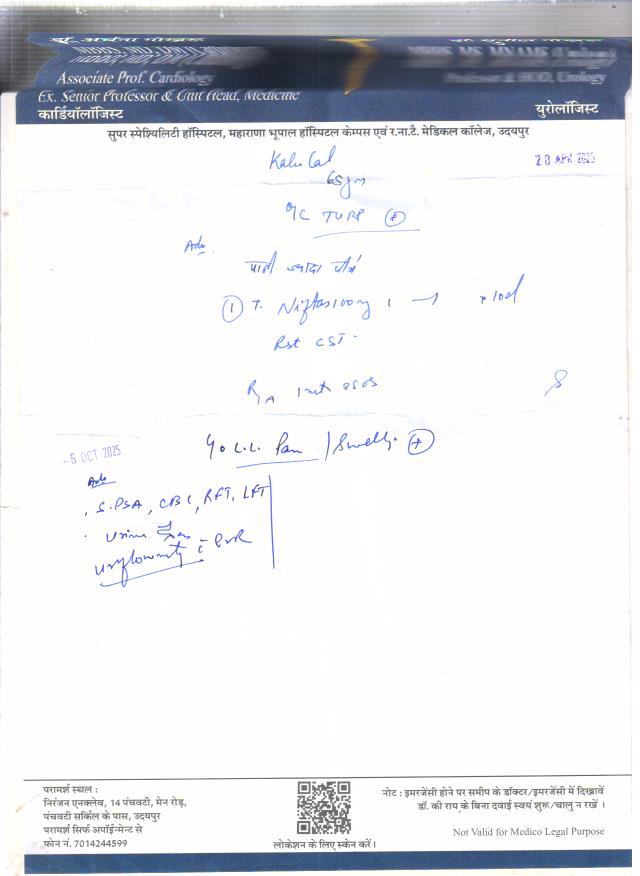 Associate Prof. Cardiology
Ex. Senior Professor & Unit Head, Medicine
कार्डियॉलॉजिस्ट
MBBS MS MNAMS (Urology)
Professor & HOD, Urology
यूरोलॉजिस्ट
सुपर स्पेश्यिलिटी हॉस्पिटल, महाराणा भूपाल हॉस्पिटल केम्पस एवं र.ना.टै. मेडिकल कॉलेज, उदयपुर
Kalu Lal
65ym
28 APR 2025
TURP (+)
Adv
पानी ज्यादा पीयें
① T. 1 → x 10d
Rst CST.
R/A 1 mt SOS
- 6 OCT 2025
L.L. Pain / Swelling (+)
Adv
. S. PSA, CBC, RFT, LFT
. Urine
Uroflowmetry c̄ PVR
परामर्श स्थल :
निरंजन एनक्लेव, 14 पंचवटी, मेन रोड़,
पंचवटी सर्किल के पास, उदयपुर
परामर्श सिर्फ अपॉईन्मेन्ट से
फोन नं. 7014244599
लोकेशन के लिए स्केन करें।
नोट : इमरजेंसी होने पर समीप के डॉक्टर/इमरजेंसी में दिखावें
डॉ. की राय के बिना दवाई स्वयं शुरू/चालु न रखें ।
Not Valid for Medico Legal Purpose